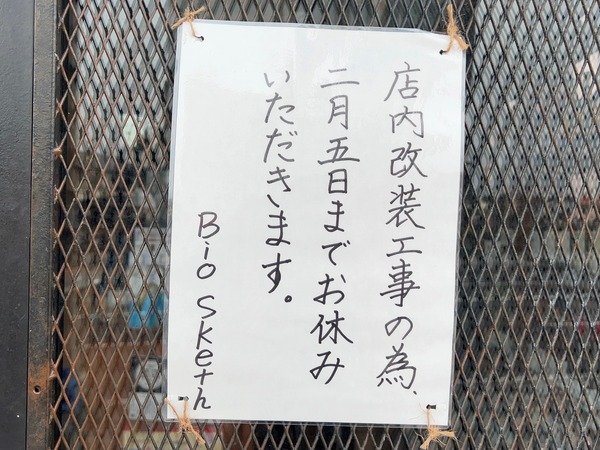 店内改装工事の為、
二月五日までお休み
いただきます。
Bio Sketh